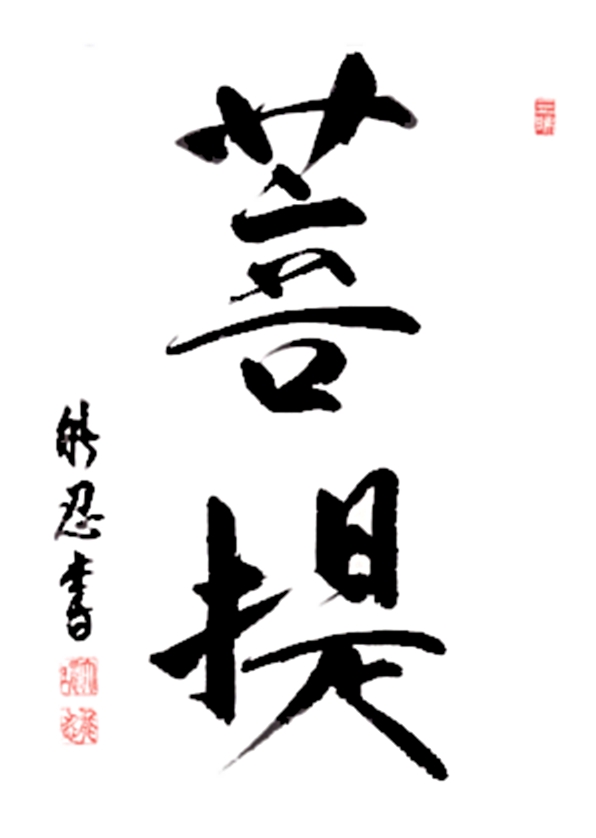 菩提
能忍書